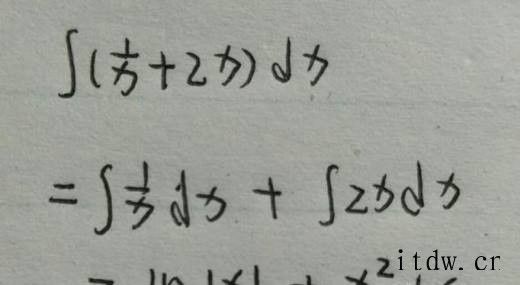 ∫(1/x + 2x) dx
= ∫ 1/x dx + ∫ 2x dx
= ln |x| + x²
itdw.cr